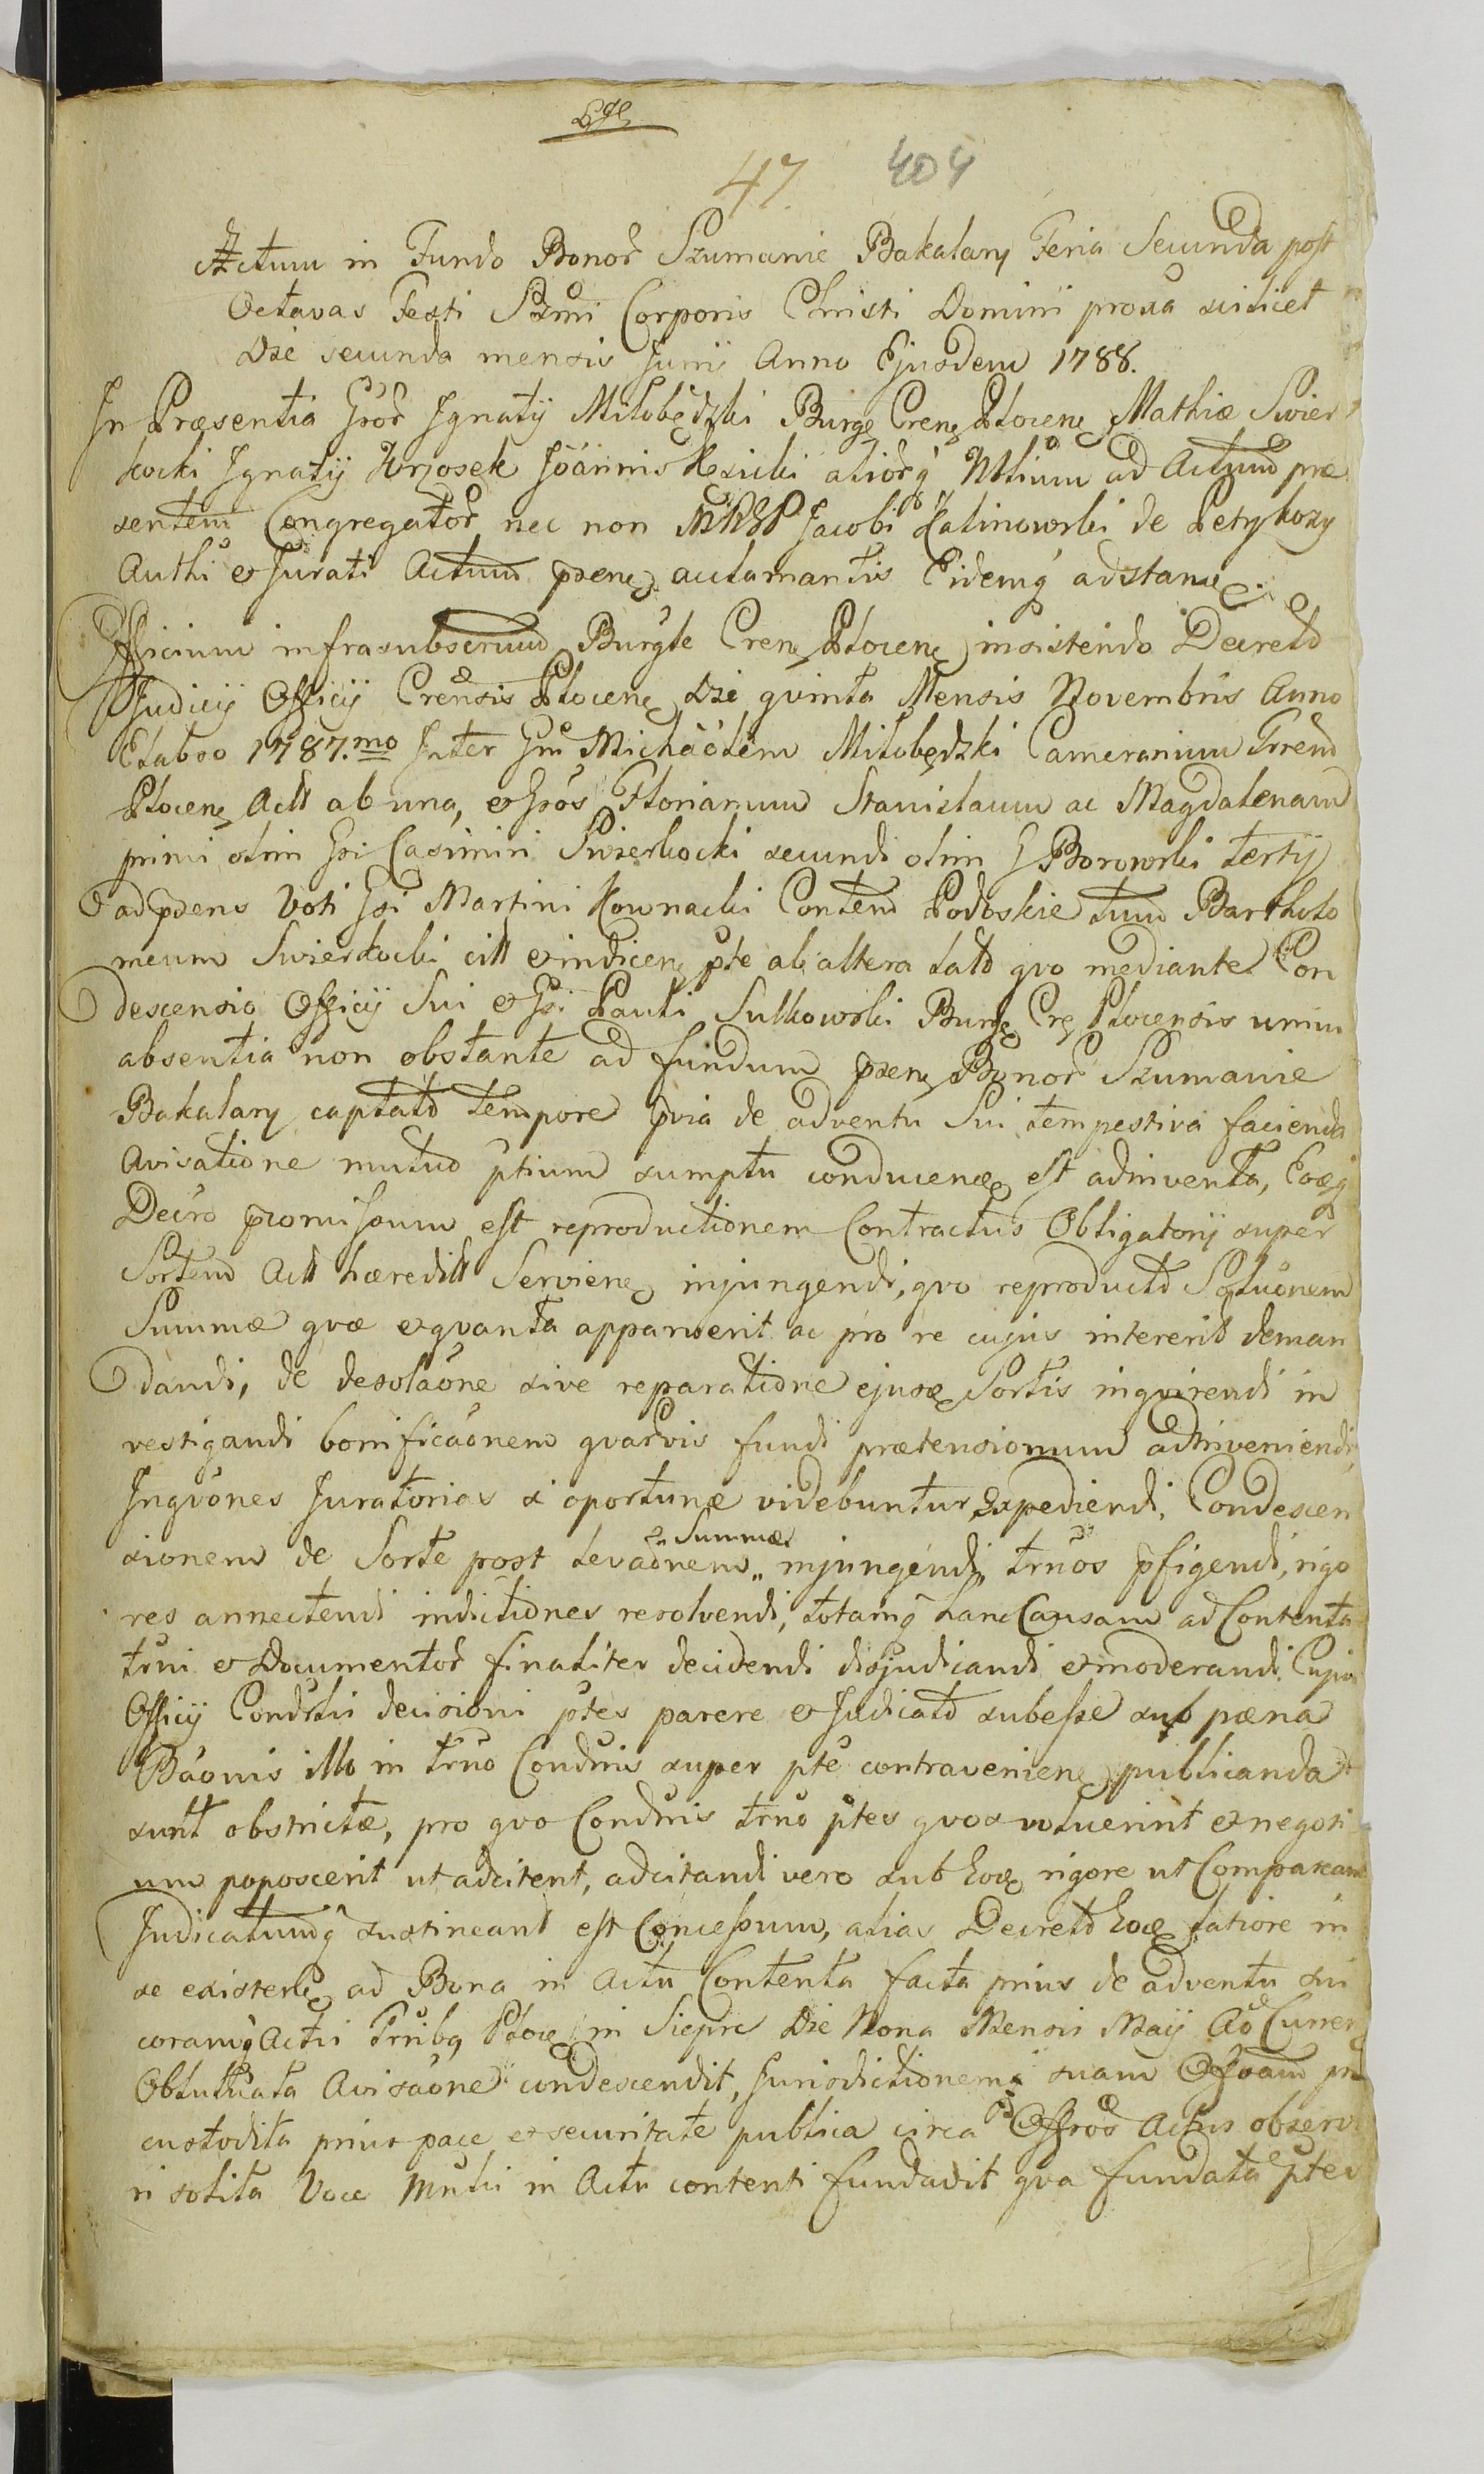 47 404
Actum in Fundo Bonor Szumanie Bakalary Feria Secunda post
Octavas Festi SSmi Corporis Christi Domini proxa scilicet
Die secunda mensis Junii Anno Ejusdem 1788.
In Præsentia Gsor Ignatij Miłobędzki Burgę Crenę Plocenę Mathiæ Swier
kocki Ignatij Wrzosek Joannis Kesicki aliorq̃ Nbliũm ad Actum præ
sentem Congregator nec non Jacobi Kalinowski de Petrykozy
Authi et Jurati Actum psenę acclamantis Eidemq̃ adstanę.
Officium infrasubscrium Burgle Crenę Plocenę insistendo Decreto
Judicij Officij Crensis Plocenę Die qvinta Mensis Novembris Anno
Elapso 1787.mo Inter Gm Michäelem Miłobędzki Camerarium Trrem
Plocenę Actt ab una, et Gsos Florianum Stanislaum ac Magdalenam
primi olim Gsi Casimiri Swierkocki secundi olim G Borowski tertij
ad psens Voti Gsi Martini Kownacki Contem Podoskie tum Bartholo
meum Swierkocki citt et indicenę pte ab altera lato qvo mediante Con
descensio Officij Sui et Gsi Pauli Sulkowski Burgę Crę Plocensis unius
absentia non obstante ad fundum psenę Bonor Szumanie
Bakalary captato tempore pvia de adventu Sui tempestiva facienda
Avisatione mutuo ptium sumptu conducenę est adinventa, Eoq̃
Decro promissum est reproductionem Contractus Obligatorij super
Sortem Actt hæreditt Servienę injungendi, qvo reproducto Solutionem
Summæ qvæ et qvanta apparuerit ac pro re cujus intererit deman
dandi, de desolãone sive reparatione ejusę Sortis inqvirendi in
vestigandi bonificãonem qvarvis fundi prætensionum adinveniendi,
Inqvones Juratorias si oportunæ videbuntur, Expediendi, Condescen
sionem de Sorte post levãonem „ Summæ injungendi, trũos pfigendi, rigo
res annectendi indictiones resolvendi, totamq̃ hanc Causam ad Contenta
trũi et Documentor finaliter decidendi disjudicandi et moderandi. Cujus
Officij Condrlis decisioni ptes parere et Judicato subesse sub pæna
Bãonis illo in trũo Condnis super pte contravenienę publicanda
sunt obstrictæ, pro qvo Condnis trũo ptes qvos voluerint et negoti
um poposcerit ut adcitent, adcitandi vero sub hocę rigore ut Compareant
Judicatumq̃ sustineant est Concessum, alias Decreto hocę latiore in
se existenę ad Bona in Actu Contenta facta prius de adventu sui
coramq̃ Actis Trribq Plocę in Sieprc Die Nona Mensis Maij Ao Currenę
Obtutuata Avisãone condescendit, Jurisdictionemq̃ suam Offioam pr
custodita prius pace et securitate publica circa Offiros Actus observ
ri solita Voce Mnlis in Actu contenti fundavit qva fundata ptes